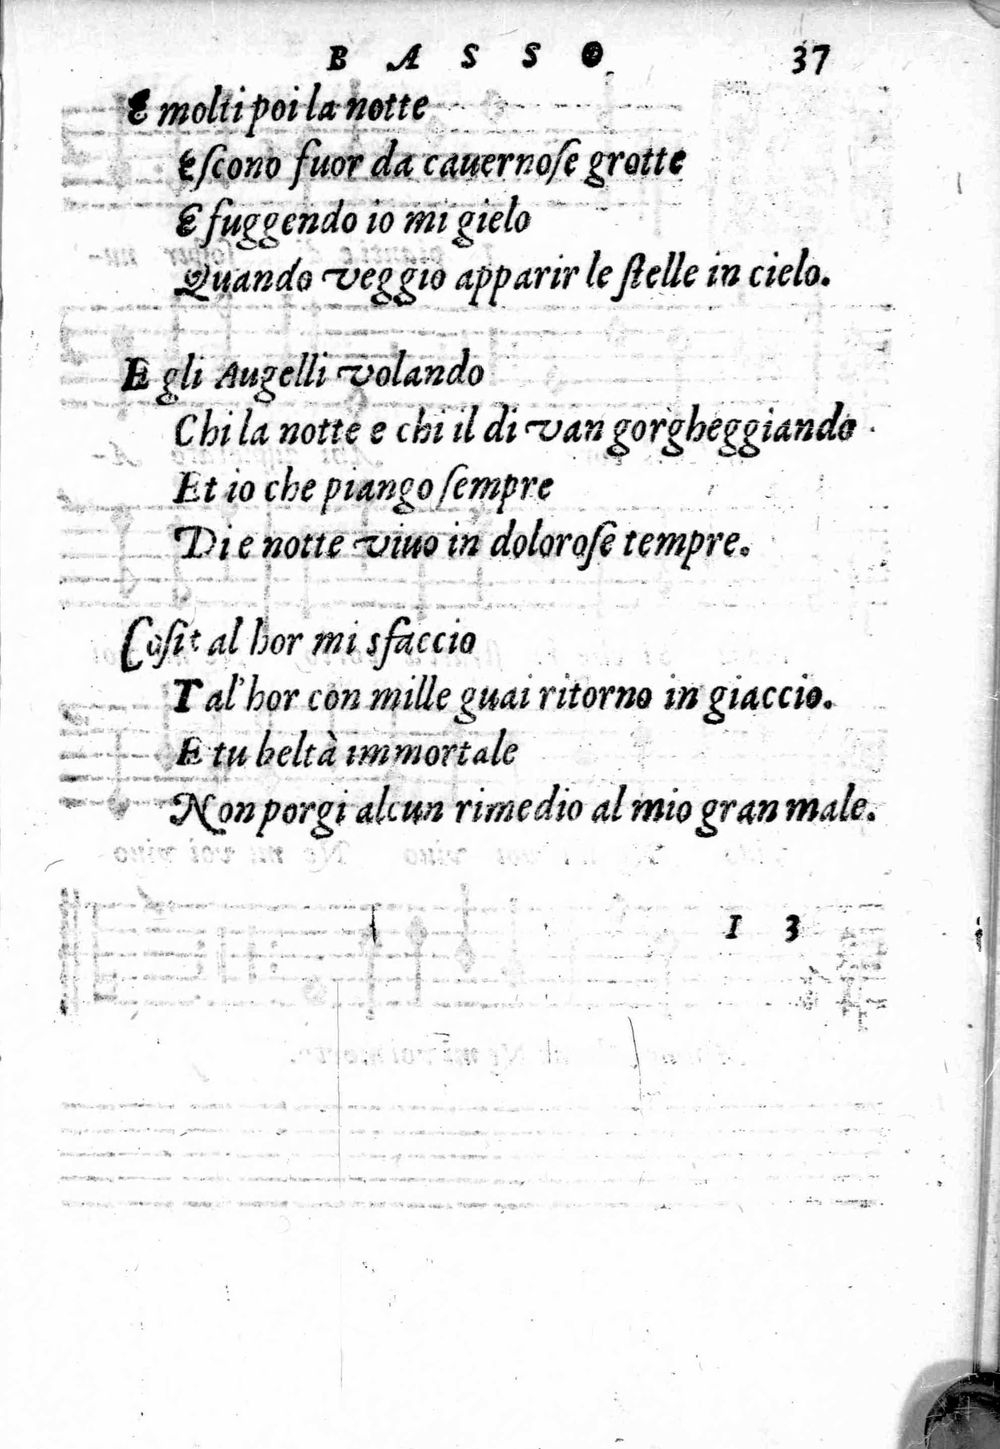 BASSO 37
E molti poi la notte
Eſcono fuor da cauernoſe grotte
E fuggendo io mi gielo
Quando veggio apparir le ſtelle in cielo.
E gli Augelli volando
Chi la notte e chi il di van gorgheggiando
Et io che piango ſempre
Di e notte viuo in doloroſe tempre.
al hor mi sfaccio
Tal'hor con mille guai ritorno in giaccio.
E tu beltà immortale
Non porgi alcun rimedio al mio gran male.
I 3